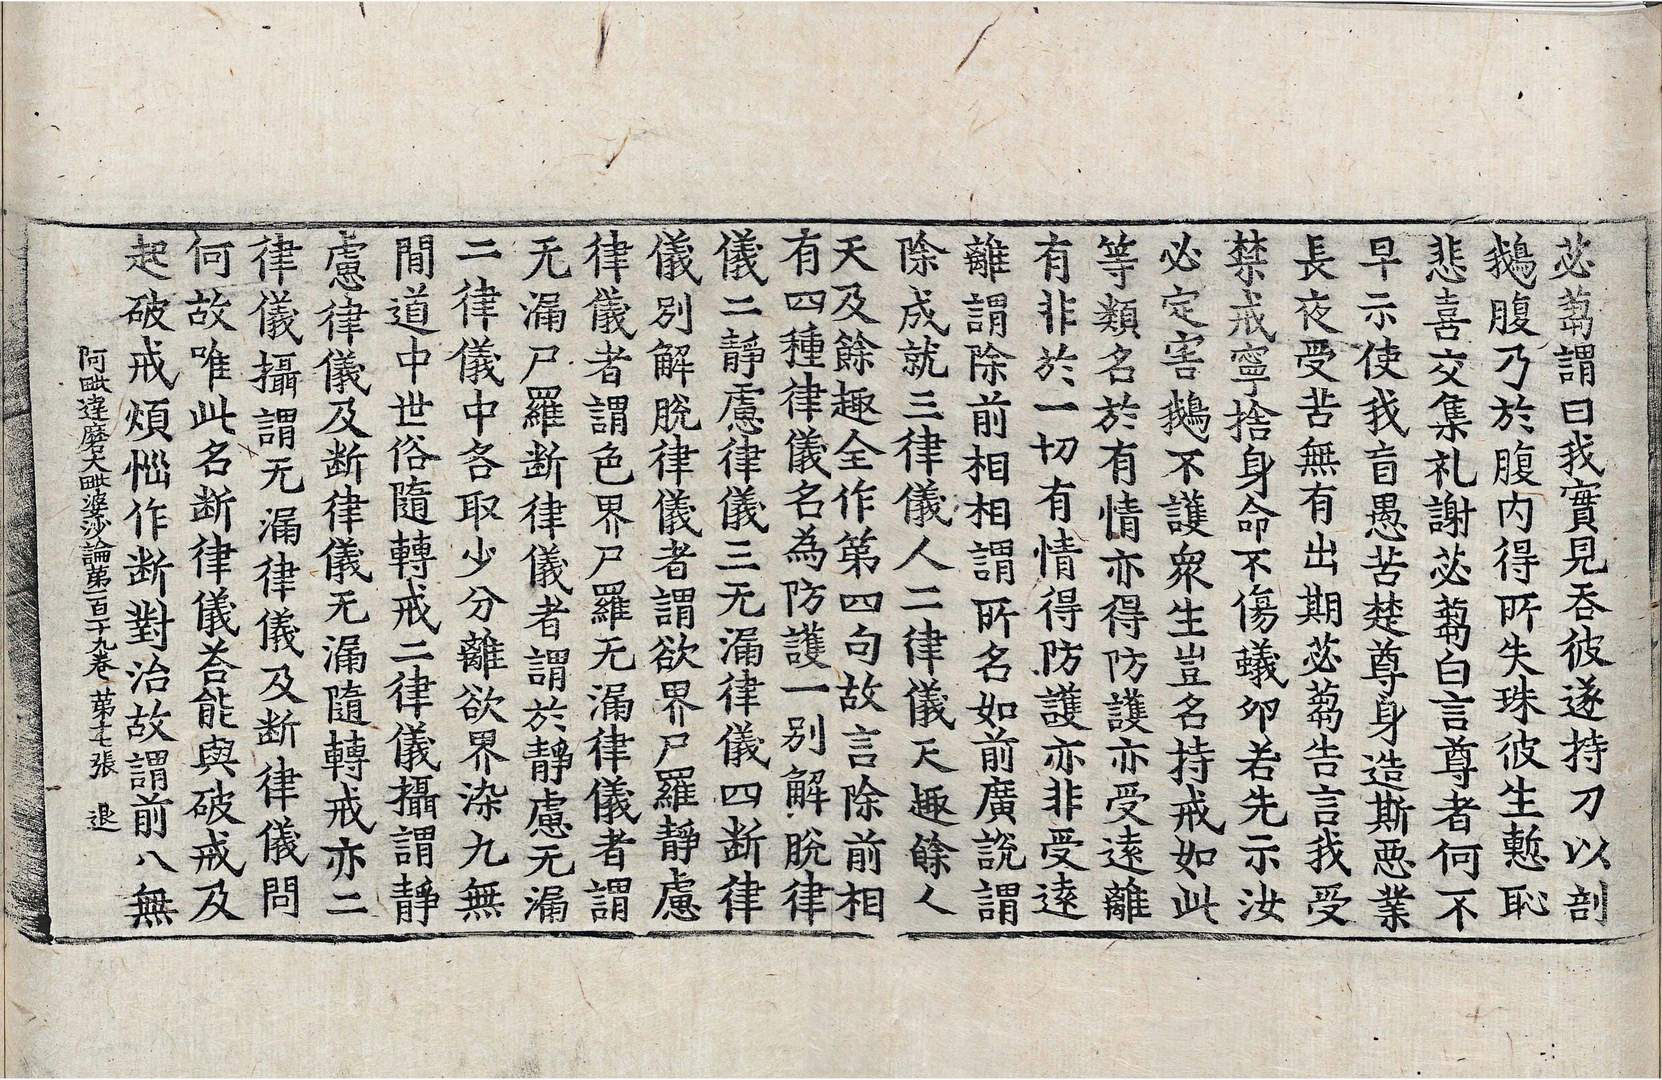 苾蒭謂曰我實見吞彼遂持刀以剖
鵝腹乃於腹内得所失珠彼生慙恥
悲喜交集礼謝苾蒭白言尊者何不
早示使我盲愚苦楚尊身造斯悪業
長夜受苦無有出期苾蒭告言我受
禁戒寧捨身命不傷蟻卵若先示汝
必定害鵝不護衆生豈名持戒如此
等類名於有情亦得防護亦受遠離
有非於一切有情得防護亦非受遠
離謂除前相相謂所名如前廣說謂
除成就三律儀人二律儀天趣餘人
天及餘趣全作第四句故言除前相
有四種律儀名為防護一别解脫律
儀二靜慮律儀三无漏律儀四断律
儀别解脫律儀者謂欲界尸羅靜慮
律儀者謂色界尸羅无漏律儀者謂
无漏尸羅断律儀者謂於靜慮无漏
二律儀中各取少分離欲界染九無
間道中世俗隨轉戒二律儀攝謂靜
慮律儀及断律儀无漏隨轉戒亦二
律儀攝謂无漏律儀及断律儀問
何故唯此名断律儀荅能與破戒及
起破戒煩惱作断對治故謂前八無
阿毗達磨大毗婆沙論第一百十九卷 第十七張 退